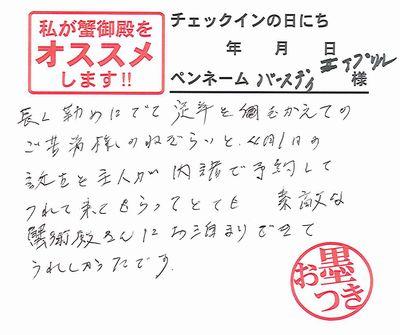 私が蟹御殿を
オススメ
します!!
チェックインの日にち
年 月 日
ペンネーム バースディ エイプリル 様
長く勤めにでて 定年を 迎えての
ご苦労様のねぎらいと、4月1日の
誕生を主人が 内緒で予約して
つれて来てもらってとても 素敵な
蟹御殿さんにお泊まりできて
うれしかったです。
お墨つき